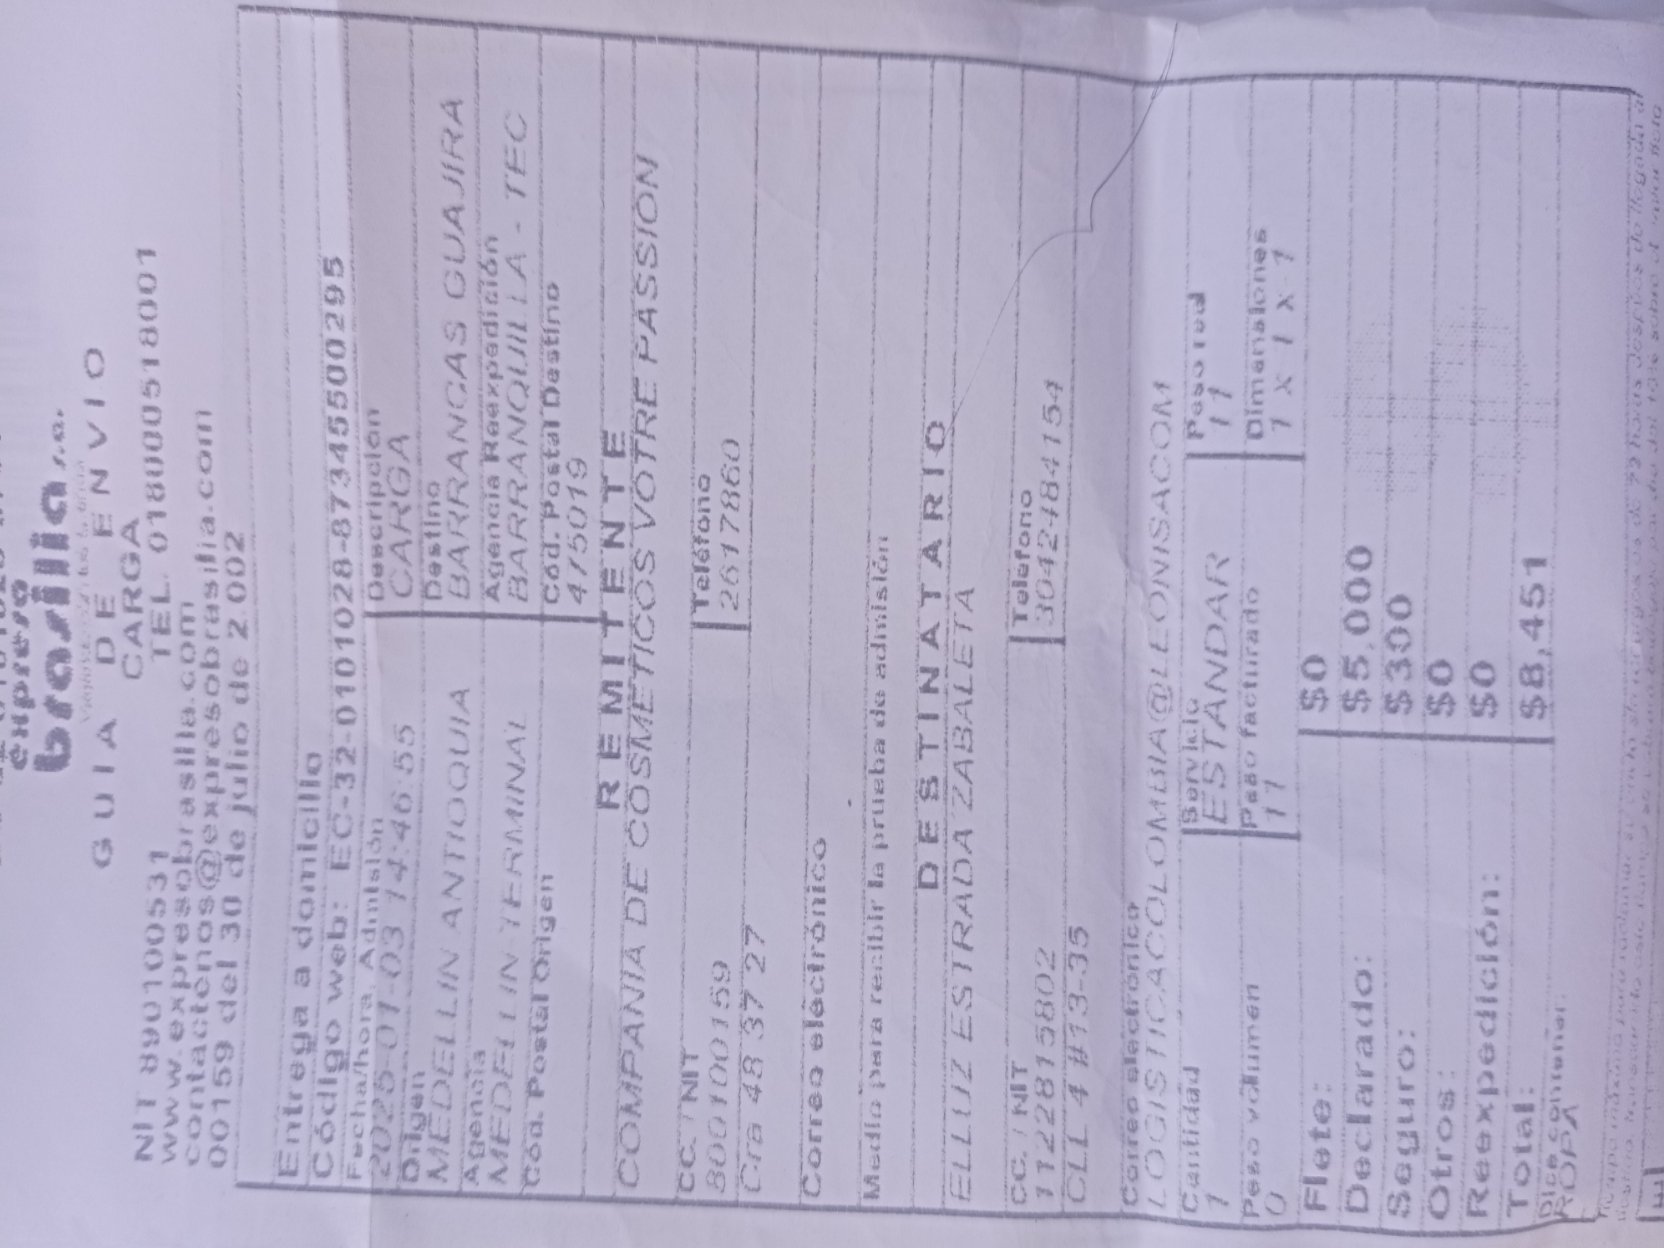 expreso
brasilia s.a.
GUIA DE ENVIO
CARGA
NIT 890100531 TEL. 018000518001
www.expresobrasilia.com
contactenos@expresobrasilia.com
00159 del 30 de julio de 2.002
Entrega a domicilio
Código web: EC-32-0101028-87345500295
Fecha/hora. Admisión Descripción
2025-01-03 14:46:55 CARGA
Origen Destino
MEDELLIN ANTIOQUIA BARRANCAS GUAJIRA
Agencia Agencia Reexpedición
MEDELLIN TERMINAL BARRANQUILLA - TEC
Cód. Postal Origen Cód. Postal Destino
475019
REMITENTE
COMPANIA DE COSMETICOS VOTRE PASSION
CC. / NIT Teléfono
8001000159 2617860
Cra 48 37 27
Correo eléctrónico
Medio para recibir la prueba de admisión
DESTINATARIO
ELLUZ ESTRADA ZABALETA
CC. / NIT Teléfono
1122815802 3042484154
CLL 4 #13-35
Correo electrónico
LOGISTICACOLOMBIA@LEONISACOM
Cantidad Servicio Peso real
1 ESTANDAR 11
Peso volumen Peso facturado Dimensiones
0 11 1 X 1 X 1
Flete: $0
Declarado: $5,000
Seguro: $300
Otros: $0
Reexpedición: $0
Total: $8,451
Dice contener:
ROPA